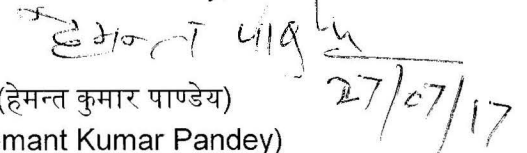 हेमन्त पाण्डेय
27/07/17
(हेमन्त कुमार पाण्डेय)
mant Kumar Pandey)